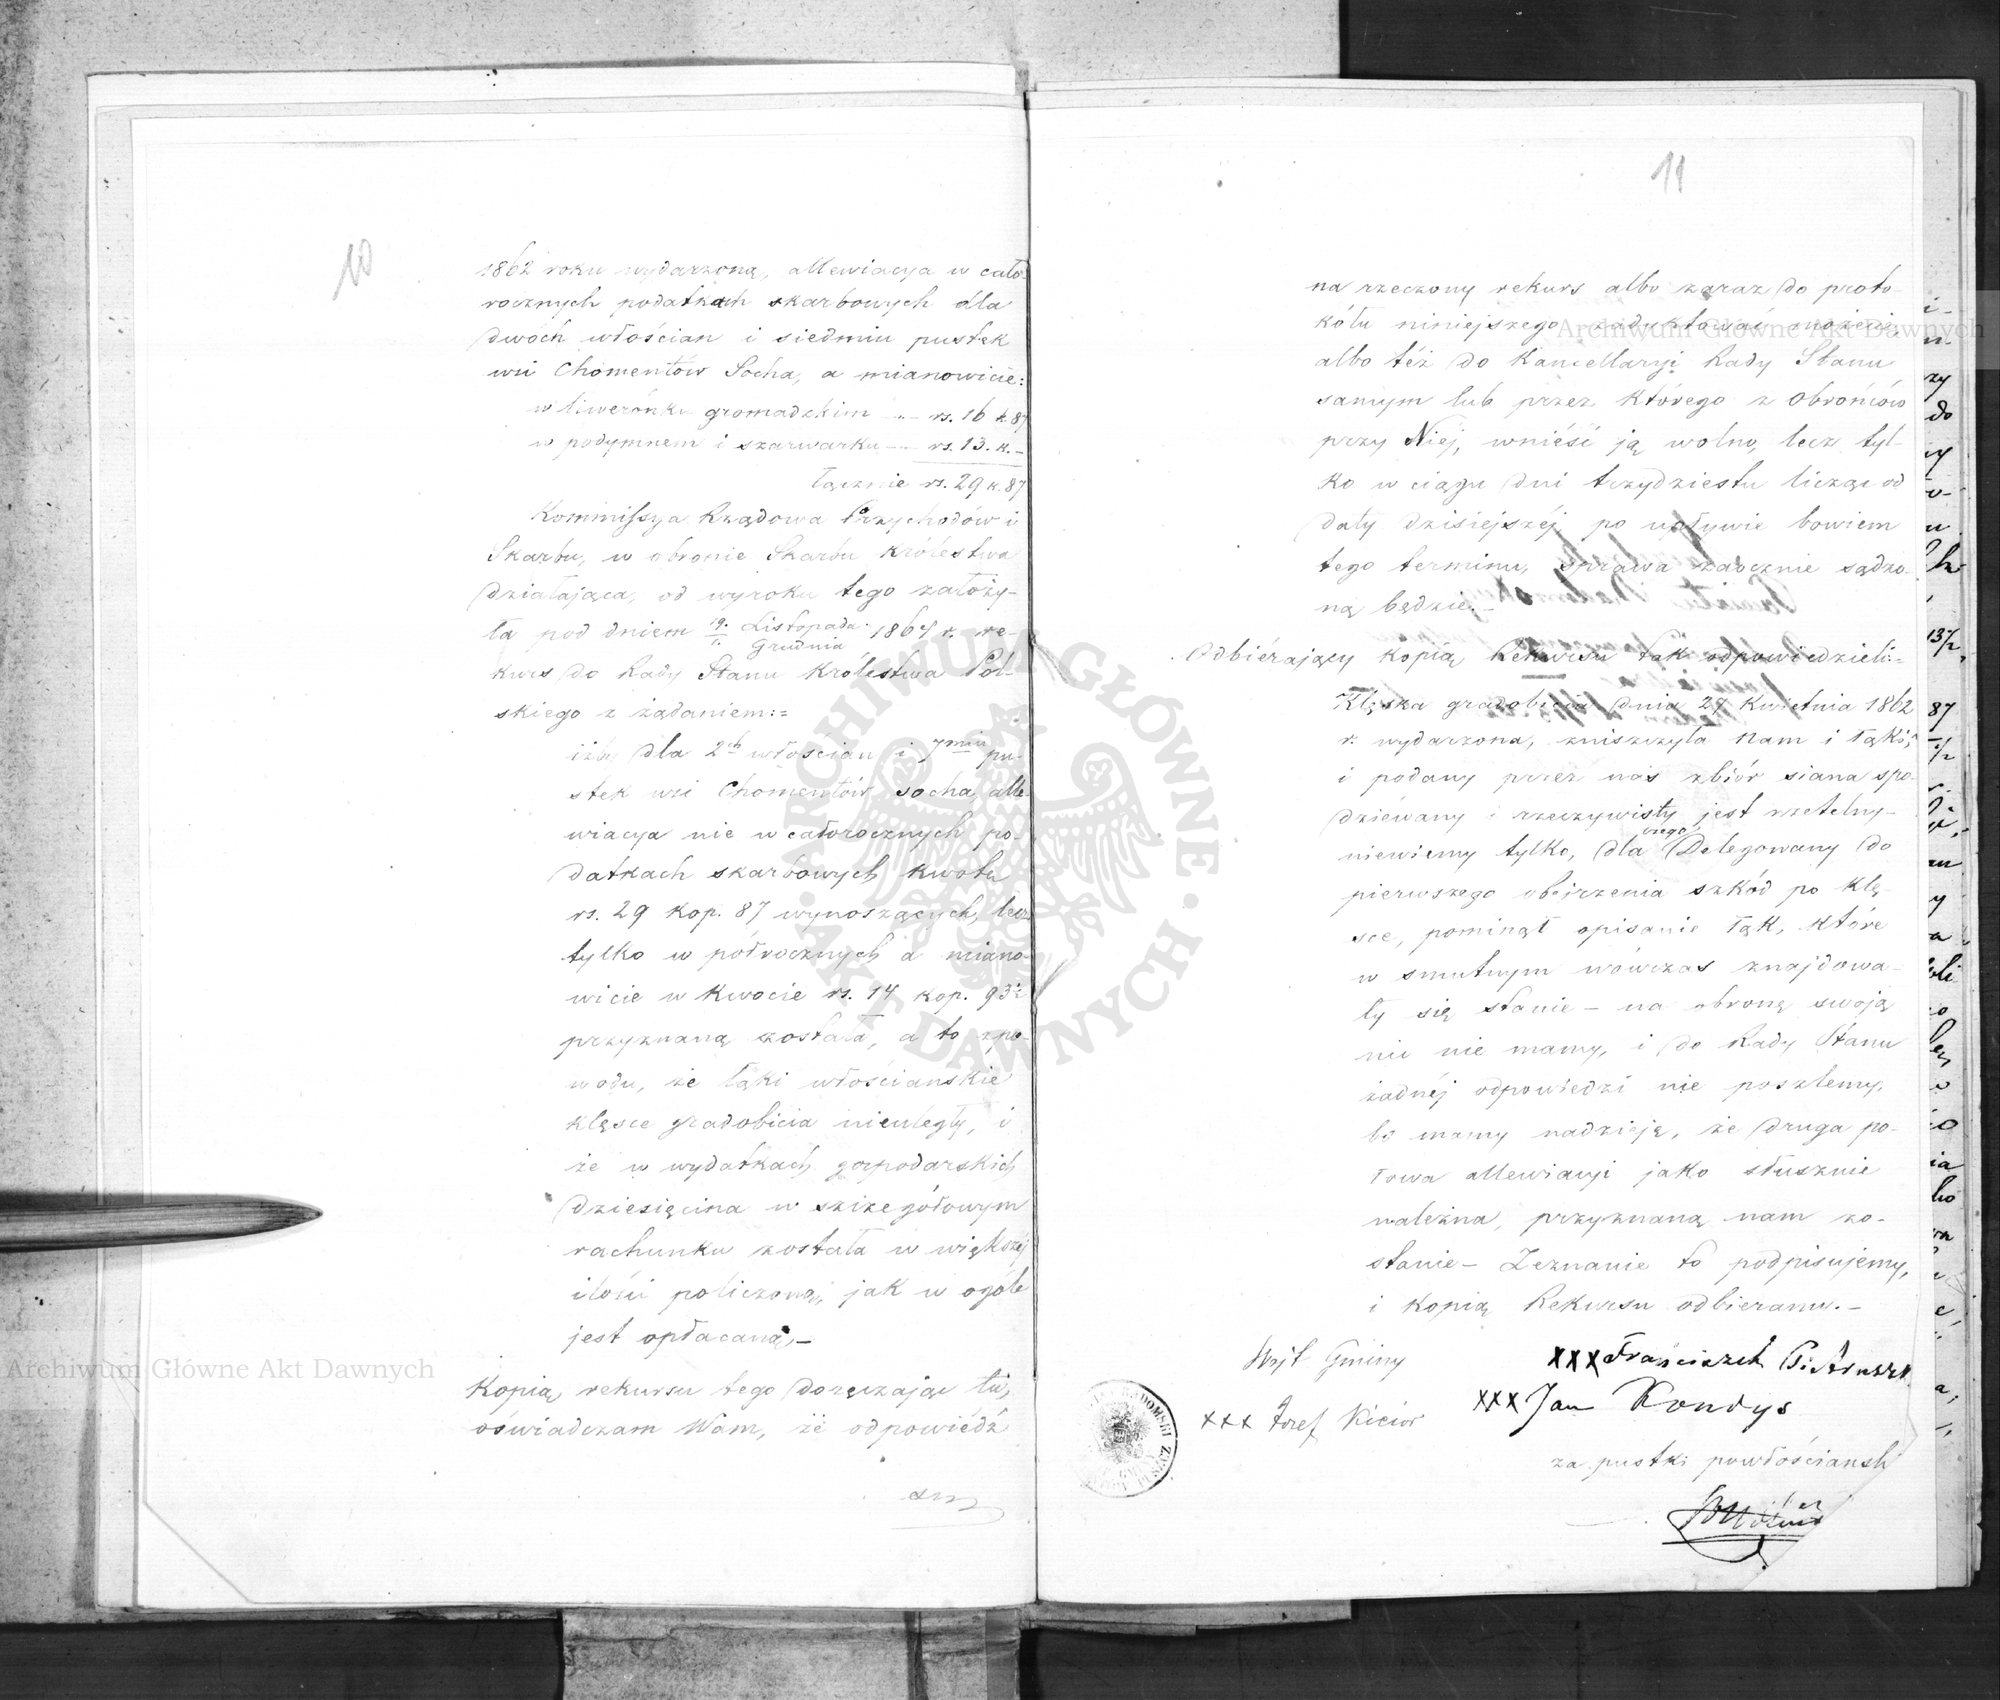 10
1862 roku wydarzoną, allewiacya w cało-
rocznych podatkach skarbowych dla
dwóch włościan i siedmiu pustek
wsi Chomentów Socha, a mianowicie:
w liwerónku gromadzkim - rs. 16 k. 87
w podymnem i szarwarku - rs. 13. k. -
łącznie rs. 29 k. 87
Kommissya Rządowa Przychodów i
Skarbu, w obronie Skarbu Królestwa
działająca, od wyroku tego założy-
ła pod dniem 19. Listopada / 1. Grudnia 1864 r. re-
kurs do Rady Stanu Królestwa Pol-
skiego z żądaniem:=
iżby dla 2ch włościan i 7miu pu-
stek wsi Chomentów Socha, alle-
wiacya nie w całorocznych po-
datkach skarbowych kwotę
rs. 29 kop. 87 wynoszących, lecz
tylko w półrocznych a miano-
wicie w kwocie rs. 14 kop. 93½
przyznaną została, a to zpo-
wodu, że łąki włościańskie
klęsce gradobicia nieuległy, i
że w wydatkach gospodarskich
dziesięcina w szczegółowym
rachunku została w większéj
ilości policzoną, jak w ogóle
jest opłacaną.-
Kopią rekursu tego doręczając tu,
oświadczam Wam, że odpowiédź
11
na rzeczony rekurs albo zaraz do proto-
kółu niniejszego zadyktować możecie,
albo téż do Kancellaryi Rady Stanu
samym lub przez którego z Obrońców
przy Niej, wnieść ją wolno, lecz tyl-
ko w ciągu dni trzydziestu licząc od
daty dzisiejszéj, po upływie bowiem
tego terminu, sprawa zaocznie sądzo-
ną będzie.-
Odbiérający kopią Rekursu tak odpowiedzieli:=
Klęska gradobicia dnia 27 Kwietnia 1862
r. wydarzona, zniszczyła nam i łąki,
i podany przez nas zbiór siana spo-
dziéwany i rzeczywisty jest rzetelny-
niewiemy tylko, dla czego Delegowany do
pierwszego obejrzenia szkód po klę-
sce, pominął opisanie łąk, które
w smutnym wówczas znajdowa-
ły się stanie - na obronę swoją
nic nie mamy, i do Rady Stanu
żadnéj odpowiedzi nie poszlemy,
bo mamy nadzieję, że druga po-
łowa allewiacyi jako słusznie
należna, przyznaną nam zo-
stanie - Zeznanie to podpisujemy,
i kopią Rekursu odbieramy.-
Wójt Gminy
xxx Józef Kicior
xxx Franciszek Pietruszk
xxx Jan Kondys
za pustki powłościańsk
Archiwum Główne Akt Dawnych
Archiwum Główne Akt Dawnych
ARCHIWUM GŁÓWNE AKT DAWNYCH